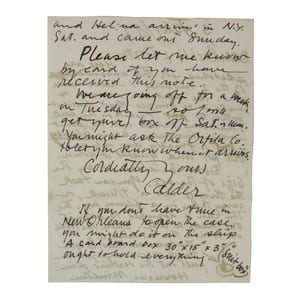 and Hel-na arrive in N.Y.
Sat. and came out Sunday.
Please let me know
by card if you have
received this note.
We are going off for a week,
on Tuesday so I will
get your box off Sat.
You might ask the Orfila Co.
to let you know when it arrives.
Cordially yours
Calder
If you don't have time in
New Orleans to open the case
you might do it on the ship
A card board box 30" x 15" x 3½"
ought to hold everything